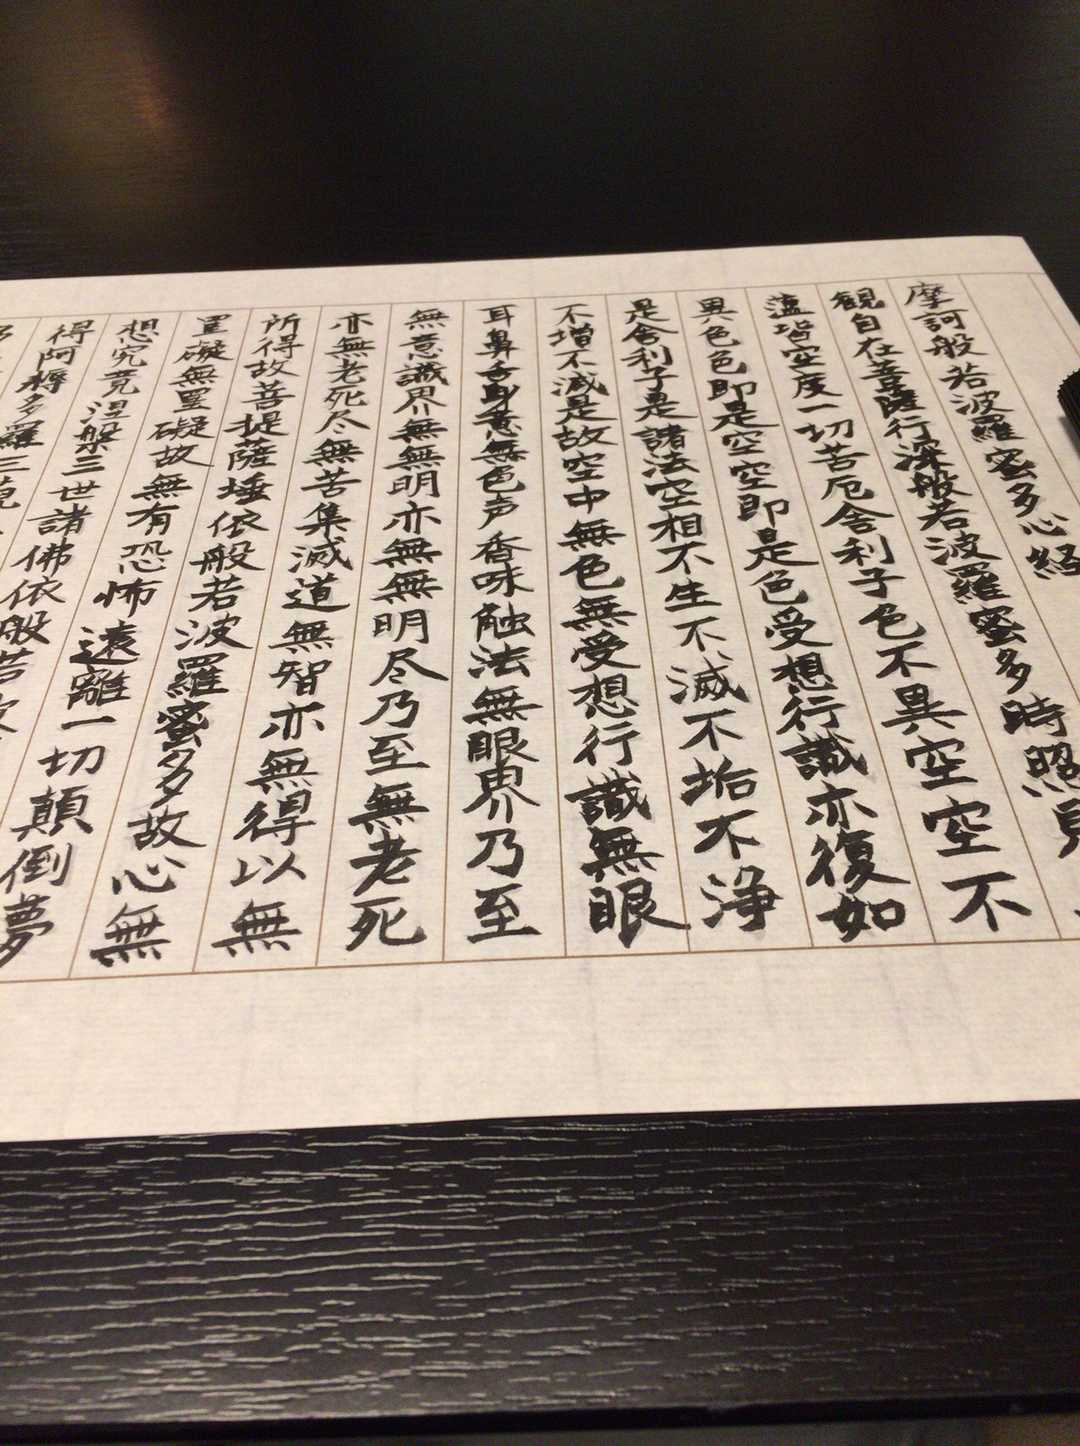 摩訶般若波羅蜜多心経
観自在菩薩行深般若波羅蜜多時照見
薀皆空度一切苦厄舎利子色不異空空不
異色色即是空空即是色受想行識亦復如
是舎利子是諸法空相不生不滅不垢不浄
不増不減是故空中無色無受想行識無眼
耳鼻舌身意無色声香味触法無眼界乃至
無意識界無無明亦無無明尽乃至無老死
亦無老死尽無苦集滅道無智亦無得以無
所得故菩提薩埵依般若波羅蜜多故心無
罣礙無罣礙故無有恐怖遠離一切顛倒夢
想究竟涅槃三世諸佛依般若波
得阿耨多羅三藐